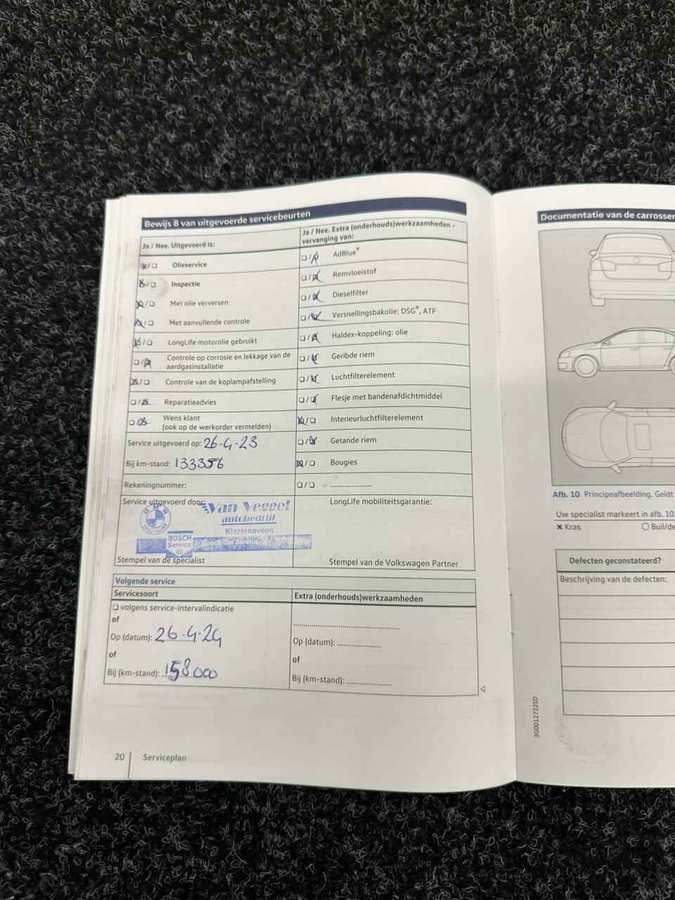 Bewijs 8 van uitgevoerde servicebeurten
Ja / Nee. Uitgevoerd is:
Olieservice
Inspectie
Met olie verversen
Met aanvullende controle
LongLife motorolie gebruikt
Controle op corrosie en lekkage van de
aardgasinstallatie
Controle van de koplampafstelling
Reparatieadvies
Wens klant
(ook op de werkorder vermelden)
Service uitgevoerd op: 26-4-23
Bij km-stand: 133356
Rekeningnummer:
Service uitgevoerd door:
Van Veggel
autobedrijf
BMW
BOSCH
Service
Stempel van de specialist
Ja / Nee. Extra (onderhouds)werkzaamheden -
vervanging van:
AdBlue®
Remvloeistof
Dieselfilter
Versnellingsbakolie: DSG®, ATF
Haldex-koppeling: olie
Geribde riem
Luchtfilterelement
Flesje met bandenafdichtmiddel
Interieurluchtfilterelement
Getande riem
Bougies
LongLife mobiliteitsgarantie:
Stempel van de Volkswagen Partner
Volgende service
Servicesoort
volgens service-intervalindicatie
of
Op (datum): 26-4-24
of
Bij (km-stand): 158000
Extra (onderhouds)werkzaamheden
Op (datum):
of
Bij (km-stand):
20 Serviceplan
Documentatie van de carrosser
Afb. 10 Principeafbeelding. Geldt
Uw specialist markeert in afb. 10
× Kras
O Buil/de
Defecten geconstateerd?
Beschrijving van de defecten:
3G0012732SD